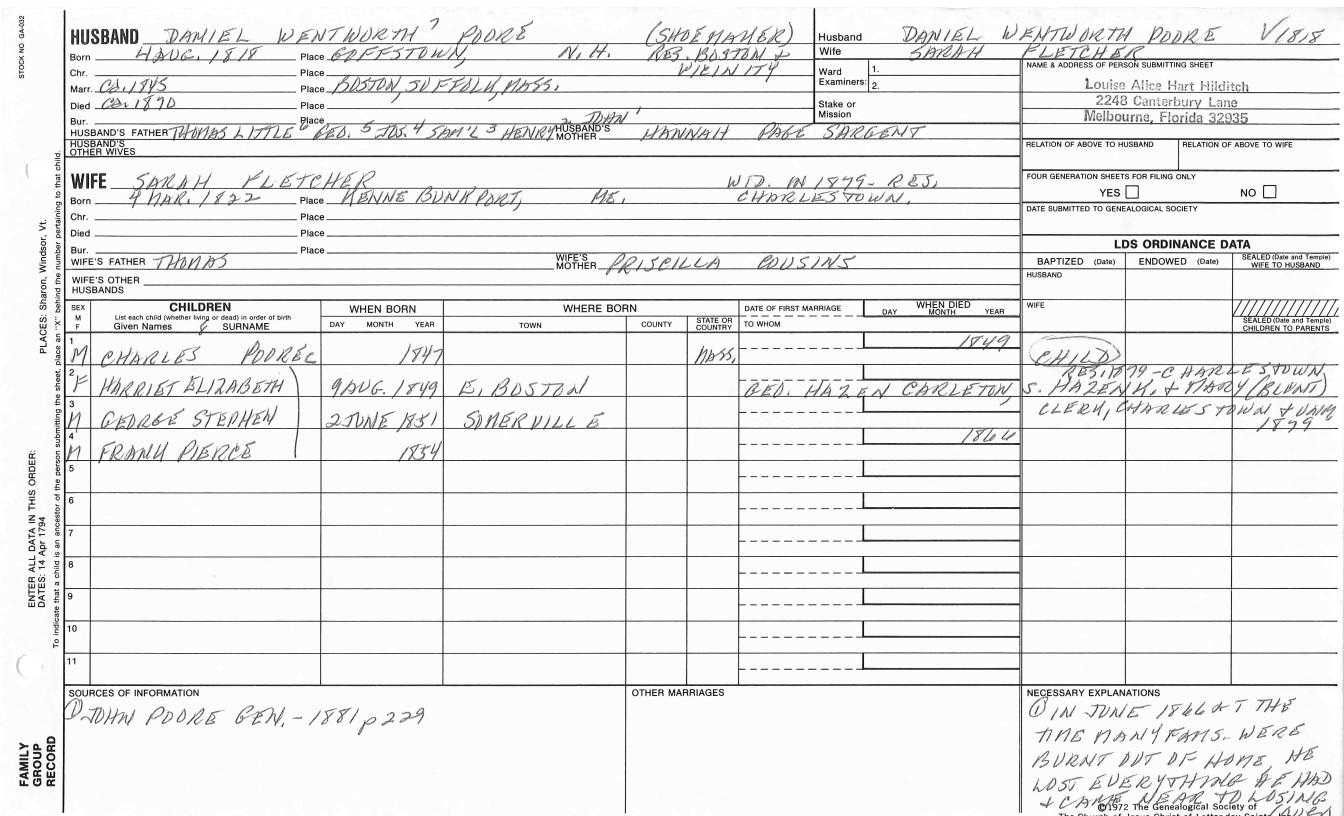 STOCK NO. GA-032
HUSBAND DANIEL WENTWORTH 7 POORE (SHOEMAKER)
Born 4 AUG. 1818 Place GOFFSTOWN, N.H. RES. BOSTON &
Chr. Place VICINITY
Marr. Ca. 1845 Place BOSTON, SUFFOLK, MASS.
Died Ca. 1870 Place
Bur. Place
HUSBAND'S FATHER THOMAS LITTLE 6 GEO. 5 JOS. 4 SAM'L 3 HENRY 2 JOHN 1 HUSBAND'S MOTHER HANNAH PAGE SARGENT
HUSBAND'S OTHER WIVES
Husband DANIEL WENTWORTH POORE V1818
Wife SARAH FLETCHER
Ward Examiners: 1.
2.
Stake or Mission
NAME & ADDRESS OF PERSON SUBMITTING SHEET
Louise Alice Hart Hilditch
2248 Canterbury Lane
Melbourne, Florida 32935
RELATION OF ABOVE TO HUSBAND RELATION OF ABOVE TO WIFE
FOUR GENERATION SHEETS FOR FILING ONLY
YES NO
DATE SUBMITTED TO GENEALOGICAL SOCIETY
WIFE SARAH FLETCHER WID. IN 1879 - RES.
Born 4 MAR. 1822 Place KENNEBUNKPORT, ME. CHARLESTOWN.
Chr. Place
Died Place
Bur. Place
WIFE'S FATHER THOMAS WIFE'S MOTHER PRISCILLA COUSINS
WIFE'S OTHER HUSBANDS
LDS ORDINANCE DATA
BAPTIZED (Date) ENDOWED (Date) SEALED (Date and Temple) WIFE TO HUSBAND
HUSBAND
WIFE
SEALED (Date and Temple) CHILDREN TO PARENTS
SEX M F CHILDREN WHEN BORN WHERE BORN DATE OF FIRST MARRIAGE WHEN DIED
List each child (whether living or dead) in order of birth
Given Names SURNAME DAY MONTH YEAR TOWN COUNTY STATE OR COUNTRY TO WHOM DAY MONTH YEAR
1 M CHARLES POORE 1847 MASS. 1849 CHILD
RES. 1879 - CHARLESTOWN,
2 F HARRIET ELIZABETH 9 AUG. 1849 E. BOSTON GEO. HAZEN CARLETON, S. HAZEN K. & MARY (BLUNT)
3 M GEORGE STEPHEN 2 JUNE 1851 SOMERVILLE CLERK, CHARLESTOWN & UNM 1879
4 M FRANK PIERCE 1854 1866
5
6
7
8
9
10
11
SOURCES OF INFORMATION
① JOHN POORE GEN. - 1881 p 229
OTHER MARRIAGES
NECESSARY EXPLANATIONS
① IN JUNE 1866 AT THE
TIME MANY FAMS. WERE
BURNT OUT OF HOME, HE
LOST EVERYTHING HE HAD
& CAME NEAR TO LOSING
©1972 The Genealogical Society of
The Church of Jesus Christ of Latter-day
PLACES: Sharon, Windsor, Vt.
ENTER ALL DATA IN THIS ORDER:
DATES: 14 Apr 1794
To indicate that a child is an ancestor of the person submitting the sheet, place an "X" behind the number pertaining to that child.
FAMILY GROUP RECORD